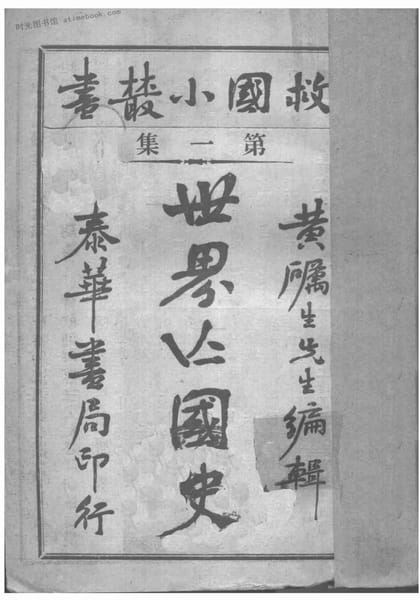 时光图书馆 atimebook.com
救國小叢書
第一集
黄礪生先生編輯
世界亡國史
泰華書局印行